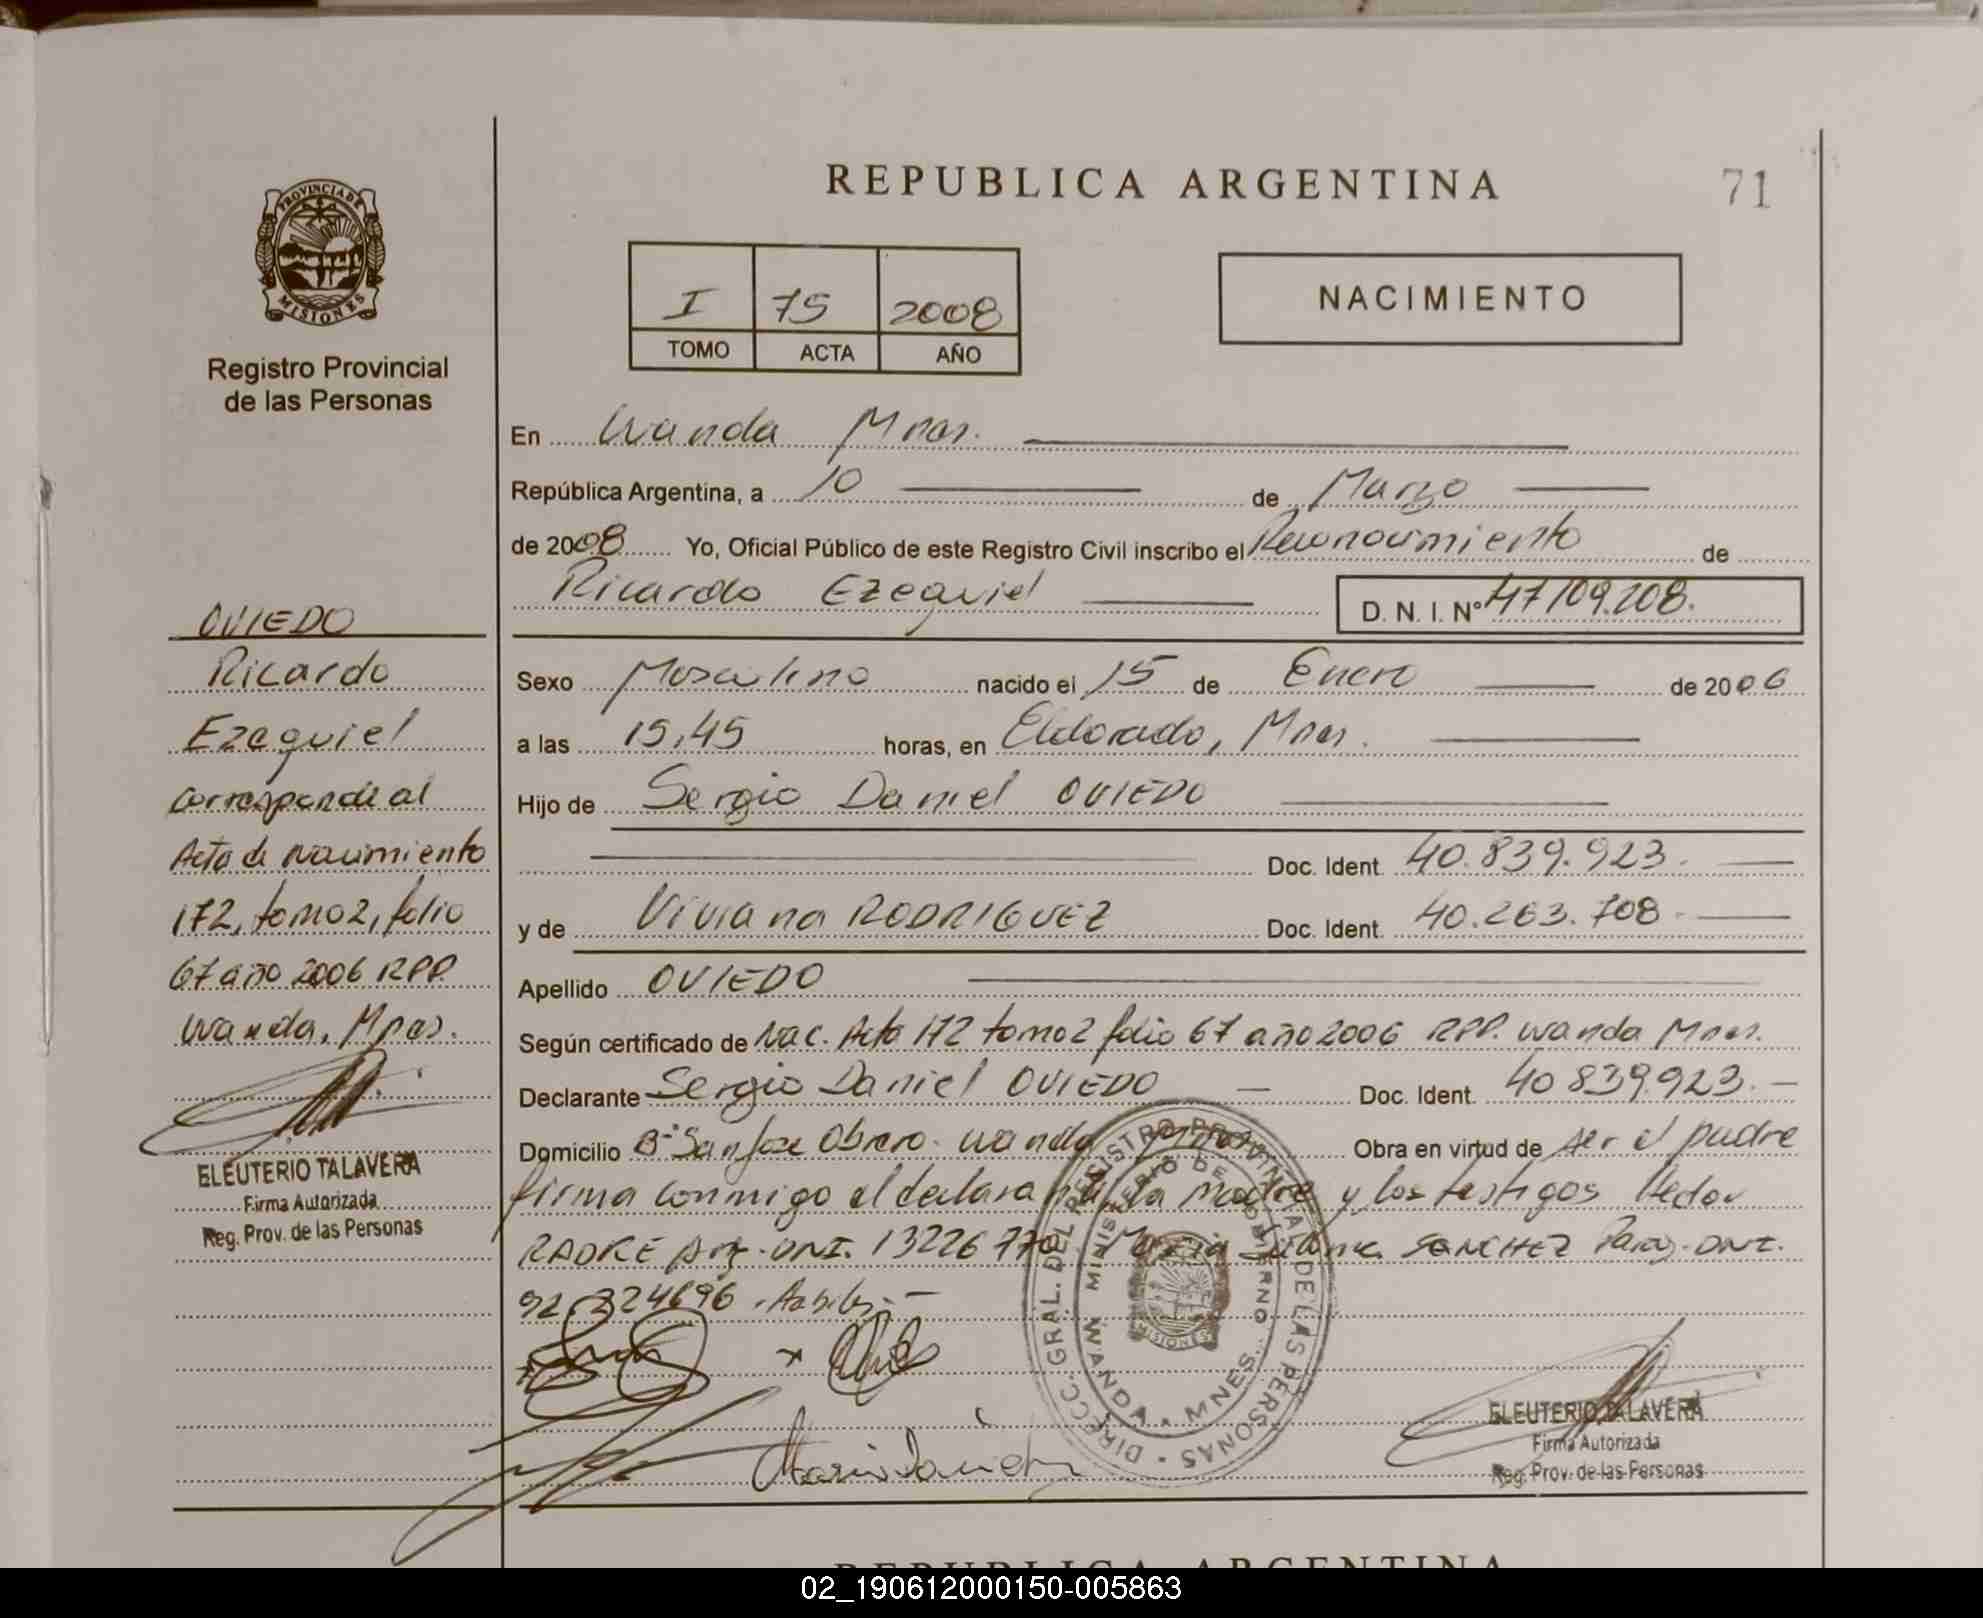 REPUBLICA ARGENTINA
71
PROVINCIA DE
MISIONES
Registro Provincial
de las Personas
I 75 2008
TOMO ACTA AÑO
NACIMIENTO
En Wanda Mnes.
República Argentina, a 10 de Marzo
de 2008 Yo, Oficial Público de este Registro Civil inscribo el Reconocimiento de
Ricardo Ezequiel D. N. I. Nº 47109.208.
Sexo Masculino nacido el 15 de Enero de 2006
a las 15,45 horas, en Eldorado, Mnes.
Hijo de Sergio Daniel OVIEDO
Doc. Ident. 40.839.923.
y de Viviana RODRIGUEZ Doc. Ident. 40.263.708
Apellido OVIEDO
Según certificado de Nac. Acta 172 tomo 2 folio 67 año 2006 RPP. Wanda Mnes.
Declarante Sergio Daniel OVIEDO Doc. Ident. 40839.923.
Domicilio Bº San Jose Obrero. Wanda Mnes Obra en virtud de ser el padre
firma conmigo el declarante, la madre y los testigos
DNI. 13226 SANCHEZ DNI.
OVIEDO
Ricardo
Ezequiel
corresponde al
Acta de nacimiento
172, tomo 2, folio
67 año 2006 RPP.
Wanda, Mnes.
ELEUTERIO TALAVERA
Firma Autorizada
Reg. Prov. de las Personas
DIRECC. GRAL. DEL REGISTRO PROVINCIAL DE LAS PERSONAS
MINISTERIO DE GOBIERNO
WANDA MNES.
MISIONES
ELEUTERIO TALAVERA
Firma Autorizada
Reg. Prov. de las Personas
REPUBLICA ARGENTINA
02_190612000150-005863